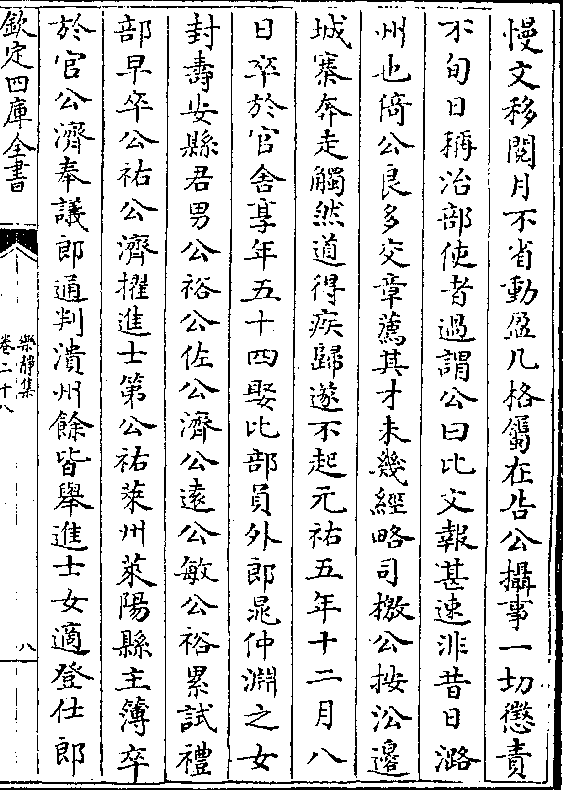 慢文移閱月不省動盈几格屬在告公攝事一切懲責
不旬日稱治部使者過謂公曰比文報甚速非昔日潞
州也倚公良多交章薦其才未幾經略司檄公按㳂邊
城寨奔走觸𤍠道得疾歸遂不起元祐五年十二月八
日卒於官舍享年五十四娶比部員外郎晁仲淵之女
封壽安縣君男公裕公佐公濟公逺公敏公裕累試禮
部早卒公祐公濟擢進士第公祐萊州萊陽縣主簿卒
於官公濟奉議郎通判濆州餘皆舉進士女適登仕郎
欽定四庫全書
樂静集
卷二十八
八